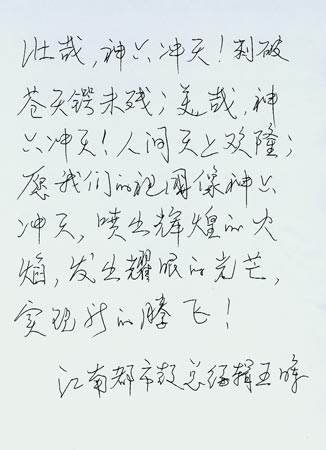 壮哉,神六冲天!刺破
苍天锷未残;美哉,神
六冲天!人间天上欢隆;
愿我们的祖国像神六
冲天,喷出辉煌的火
焰,发出耀眼的光芒,
实现新的腾飞!
江南都市报总编辑王晖